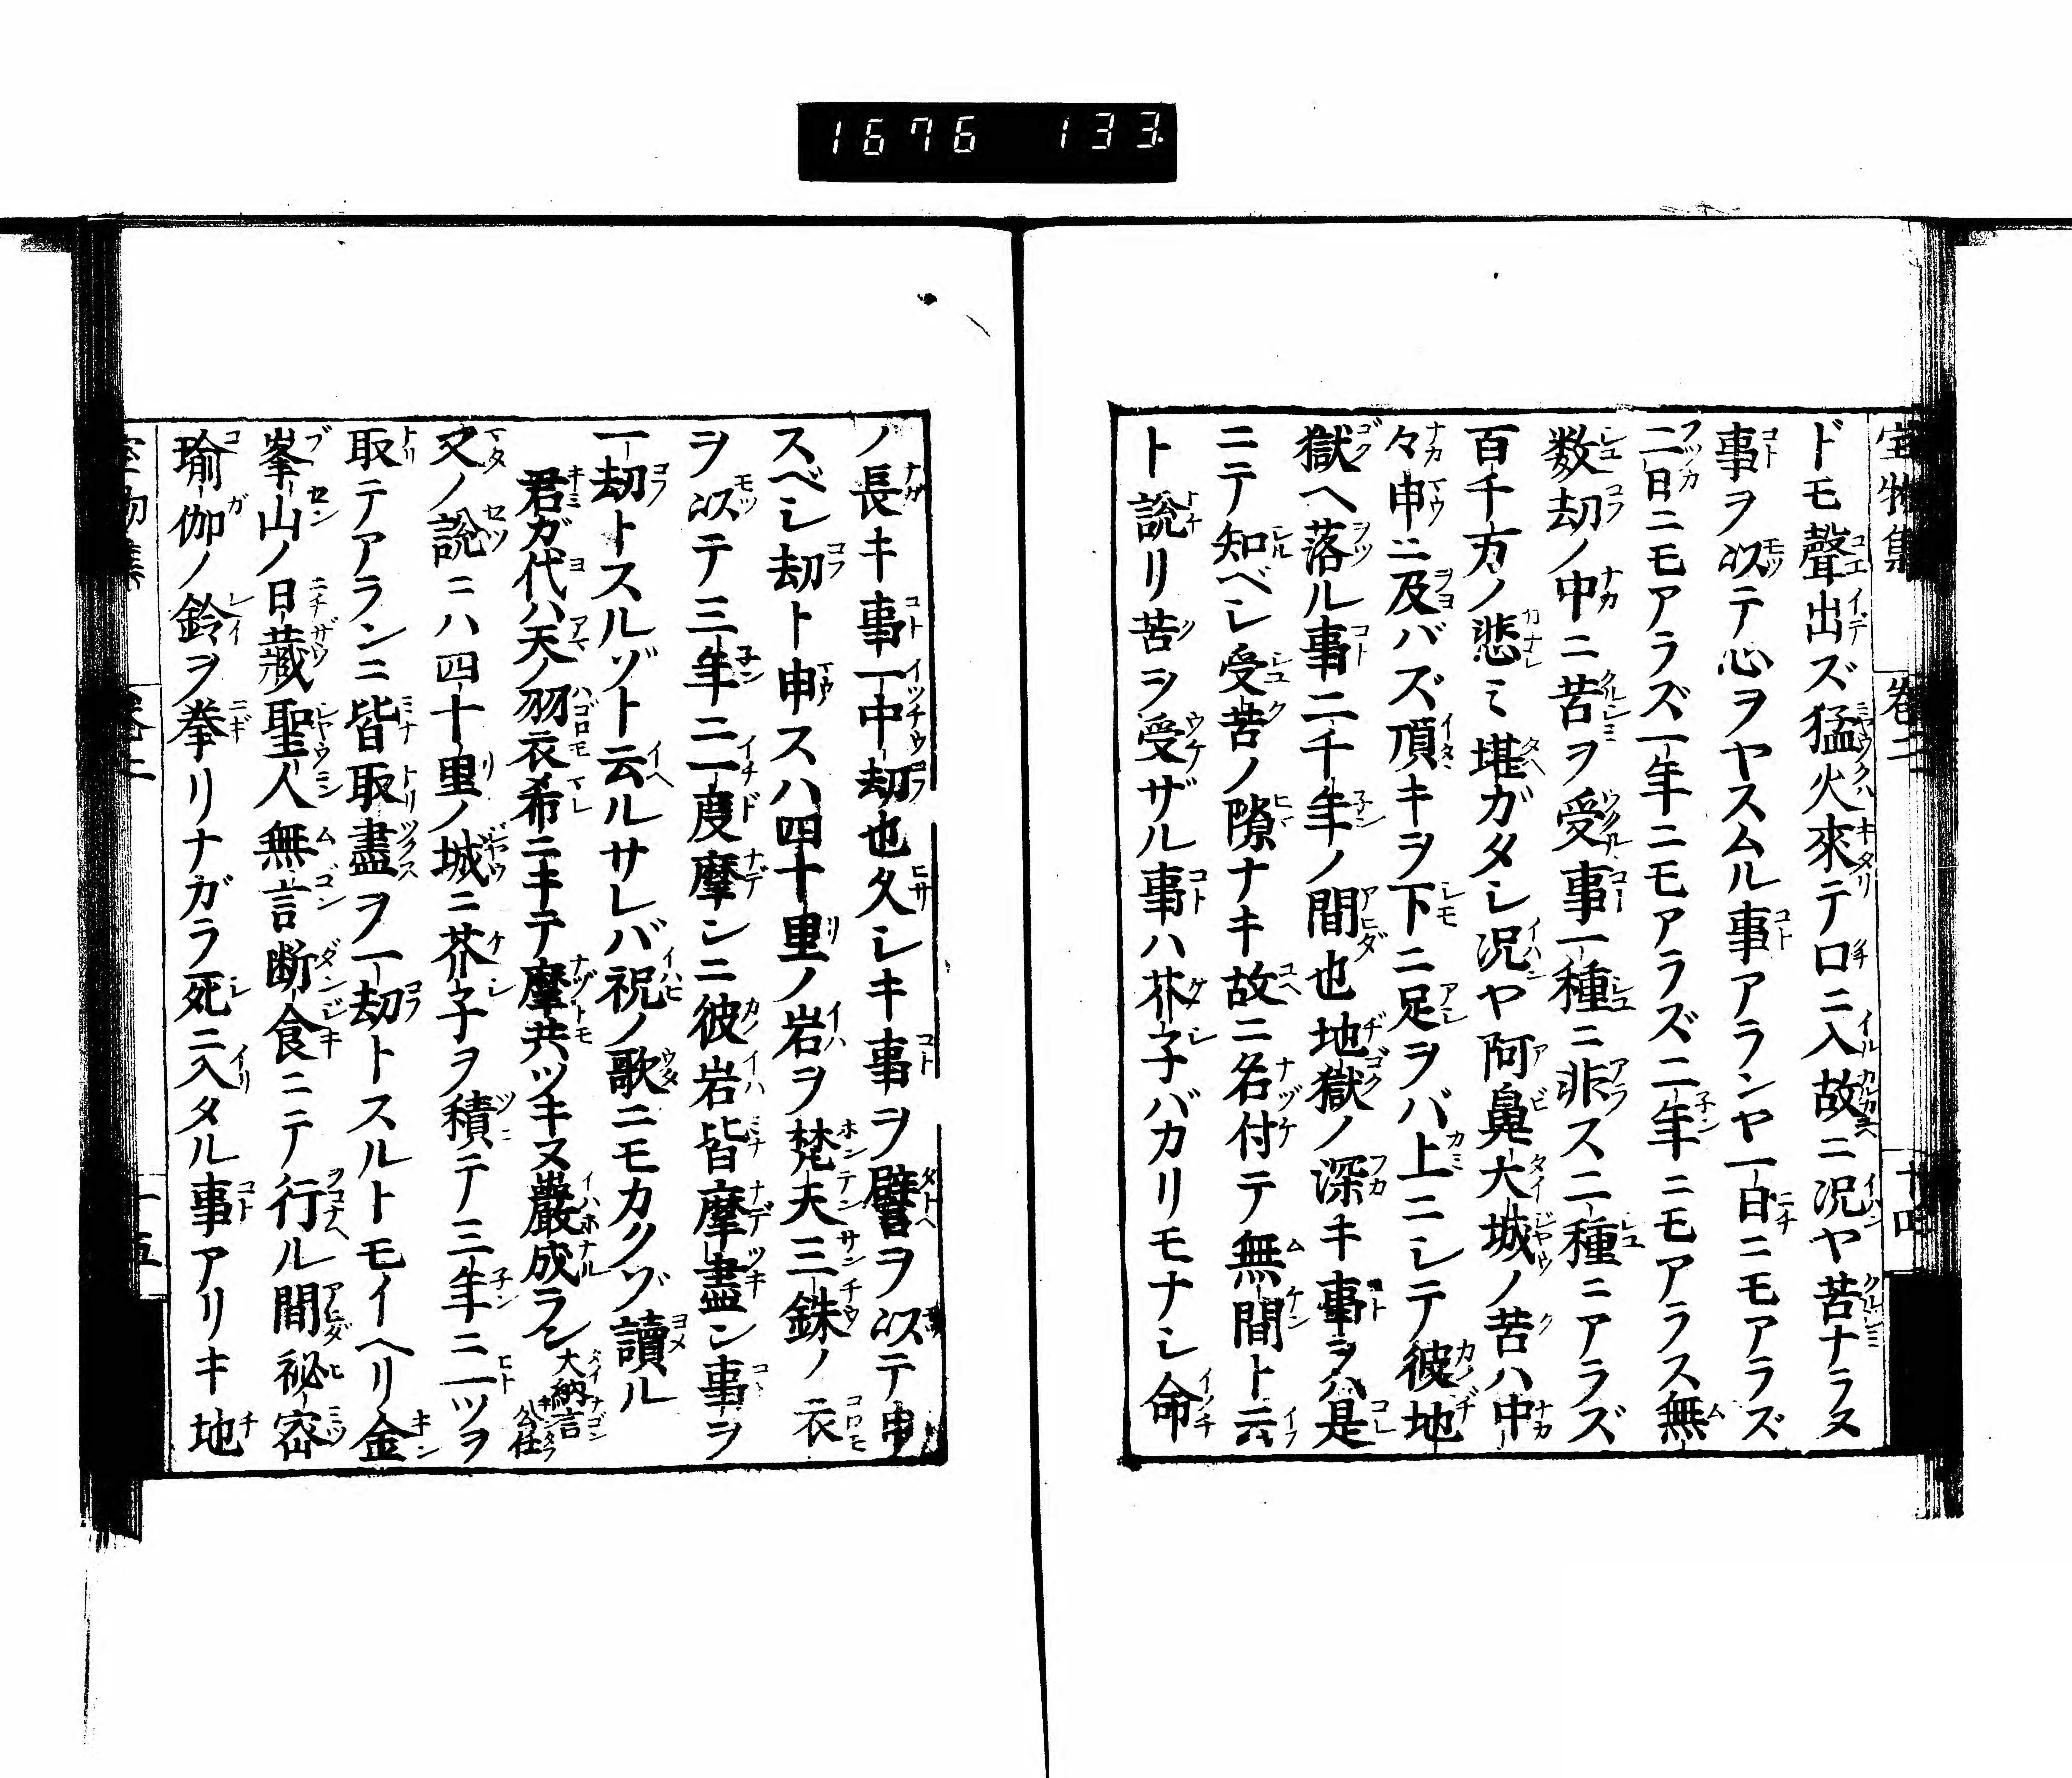 1676 133
宝物集 巻二 十四
ドモ聲出ズ猛火來テ口ニ入故ニ况ヤ苦ナラヌ
事ヲ以テ心ヲヤスムル事アランヤ一日ニモアラズ
二日ニモアラズ一年ニモアラズ二年ニモアラス無
数劫ノ中ニ苦ヲ受事一種ニ非ス二種ニアラズ
百千万ノ悲ミ堪ガタシ况ヤ阿鼻大城ノ苦ハ中
々申ニ及バズ頂キヲ下ニ足ヲバ上ニシテ彼地
獄ヘ落ル事二千年ノ間也地獄ノ深キ事ヲハ是
ニテ知ベシ受苦ノ隙ナキ故ニ名付テ無間ト云
ト說リ苦ヲ受ザル事ハ芥子バカリモナシ命
ノ長キ事一中劫也久シキ事ヲ譬ヲ以テ申
スベシ劫ト申スハ四十里ノ岩ヲ梵天三銖ノ衣
ヲ以テ三年ニ一度摩シニ彼岩皆摩盡ン事ヲ
一劫トスルゾト云ルサレバ祝ノ歌ニモカクゾ讀ル
君ガ代ハ天ノ羽衣希ニキテ摩共ツキヌ巖成ラン 大納言公任
又ノ說ニハ四十里ノ城ニ芥子ヲ積テ三年ニ一ツヲ
取テアランニ皆取盡ヲ一劫トスルトモイヘリ金
峯山ノ日藏聖人無言断食ニテ行ル間祕密
瑜伽ノ鈴ヲ拳リナガラ死ニ入タル事アリキ地